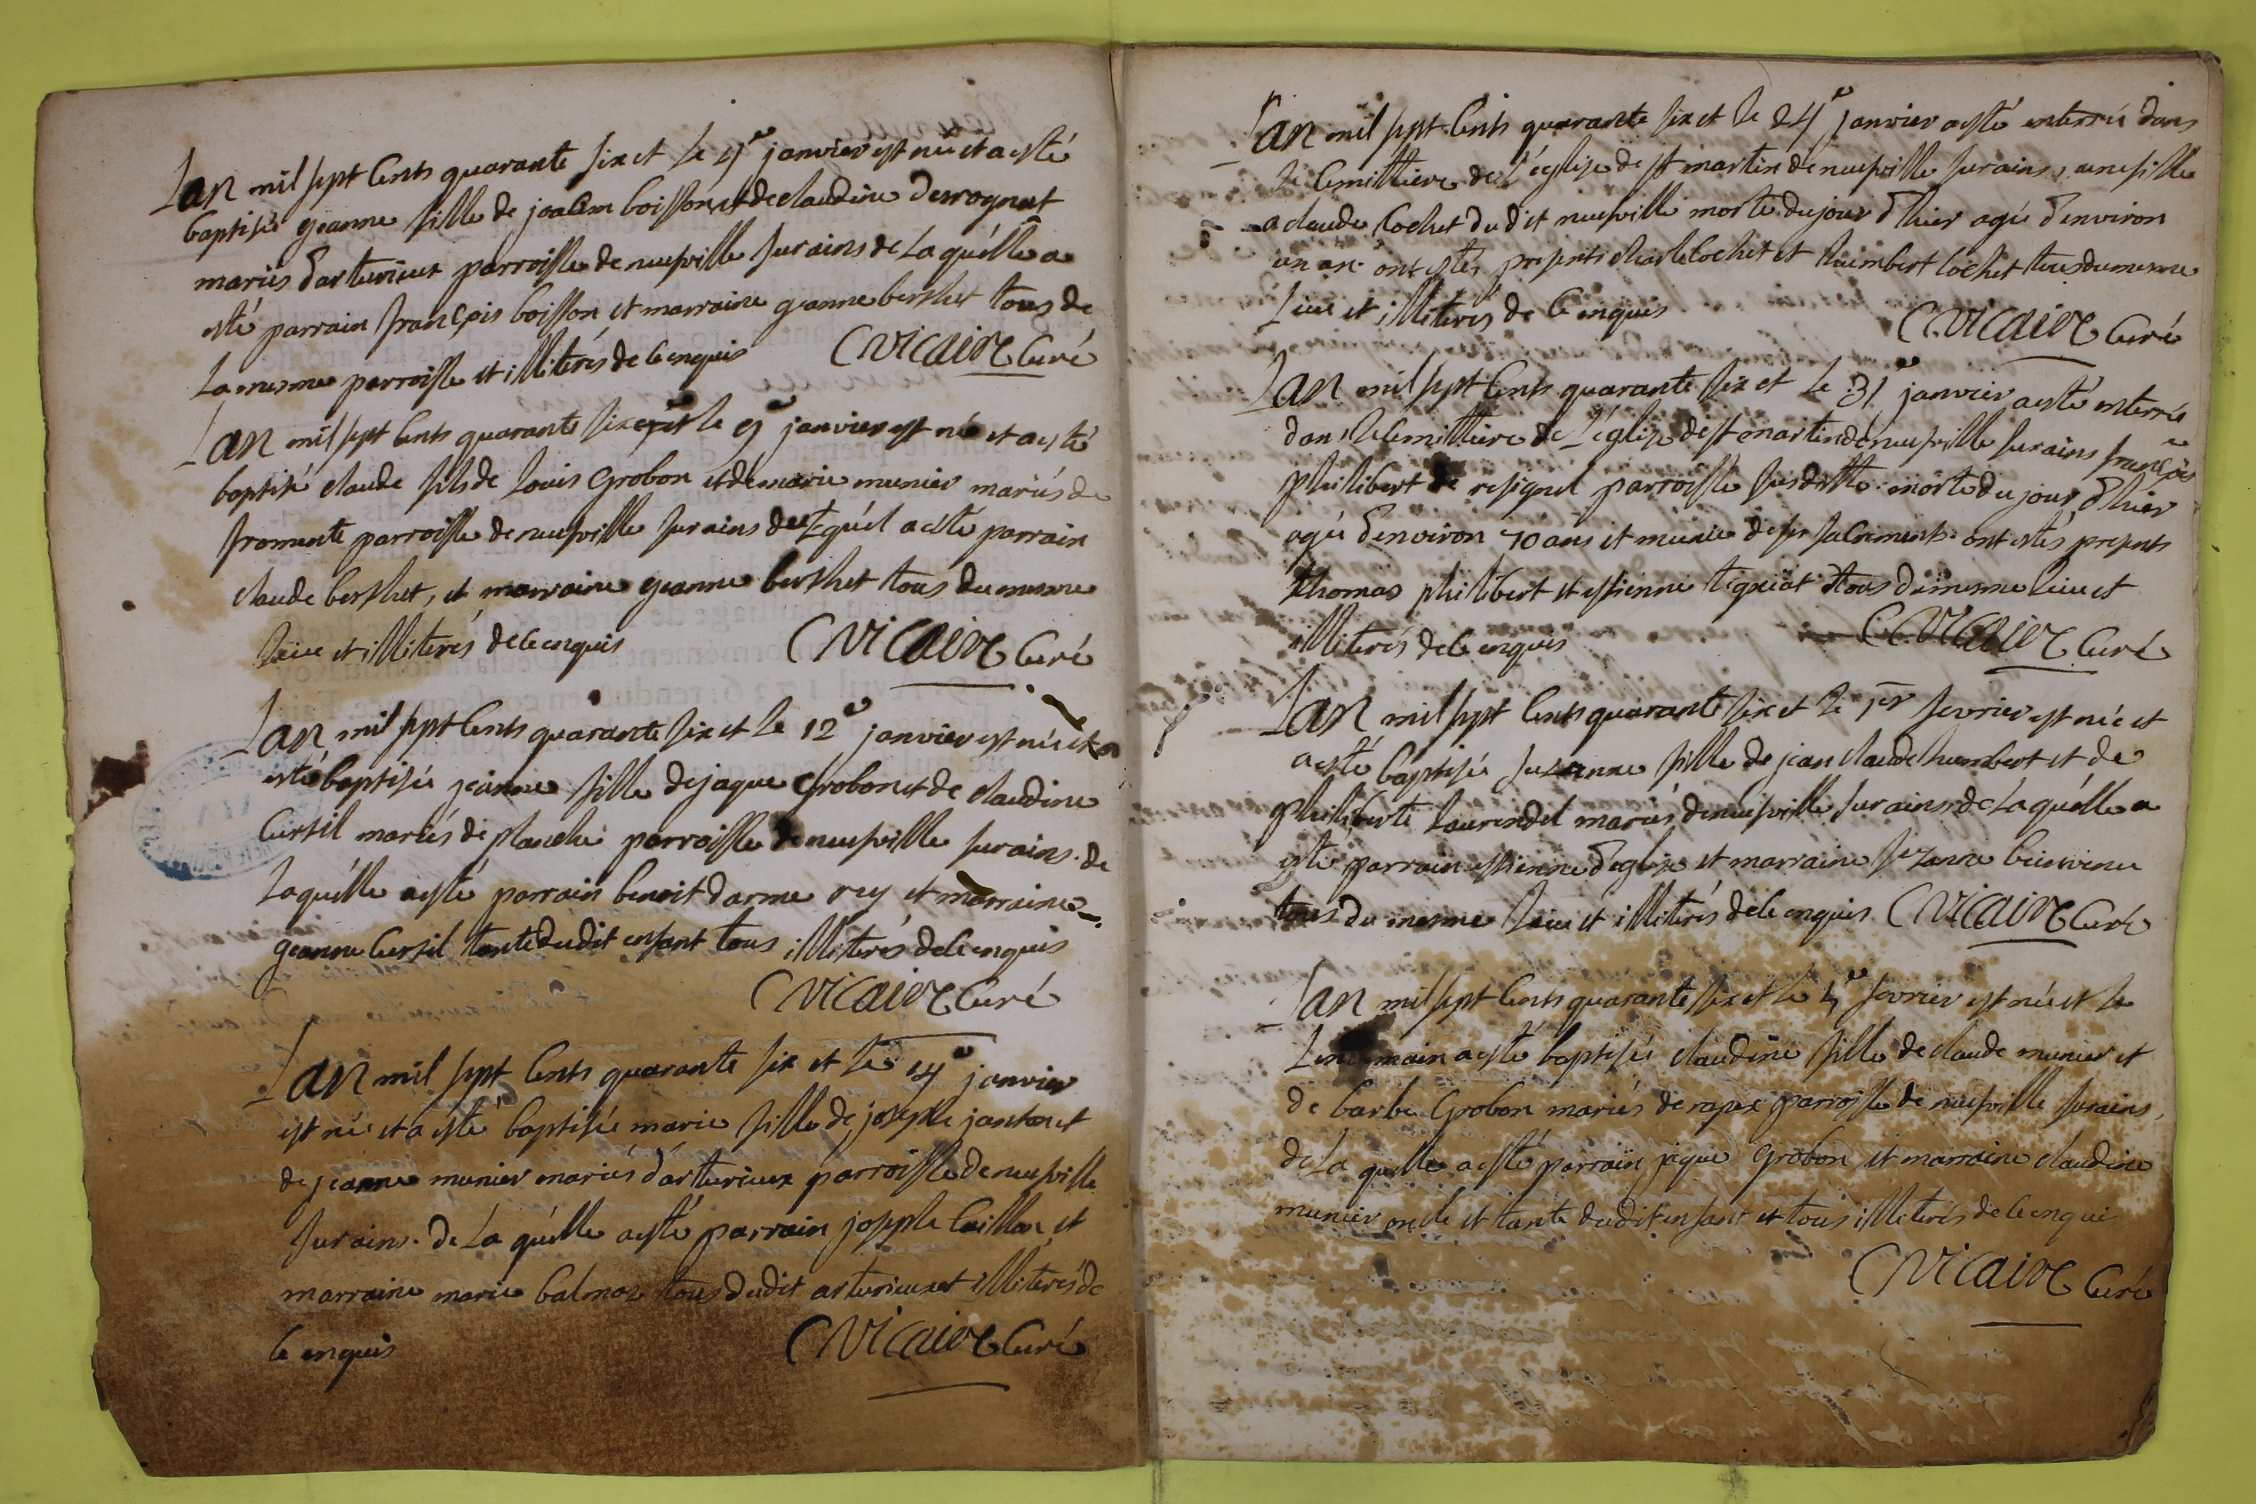 Lan mil sept Cents quarante six et le 4e janvier est née et a esté
baptisée geanne fille de joacim boisson, et de claudine derognat
mariés d'arturieux parroisse de neufville sur ains de La quélle a
esté parrain françois boisson et marraine geanne berthet tous de
La mesme parroisse et illiterés de ce enquis C Vicaire Curé
Lan mil sept Cents quarante six et le 9e janvier est né et a esté
baptisé claude fils de Louis Grobon et de marie munier mariés de
fromente parroisse de neufville sur ains du Lequél a esté parrain
claude berthet, et marraine geanne berthet tous du mesme
Lieu et illiterés de ce enquis C Vicaire Curé
Lan mil sept Cents quarante six et le 12e janvier est née et a
esté baptisée jeanne fille de jaque Grobon et de claudine
Cursil mariés de planche parroisse de neufville sur ains. de
Laquélle a esté parrain benoit darme rey et marraine
geanne Cursil tante dudit enfant tous illiterés de ce enquis
C Vicaire Curé
Lan mil sept Cents quarante six et le 14e janvier
est née et a esté baptisée marie fille de joseph janton et
de jeanne munier mariés d'arturieux parroisse de neufville
sur ains. de La quélle a esté parrain joseph Caillon et
marraine marie balmon tous dudit arturieux et illiterés de
ce enquis C Vicaire Curé
Lan mil sept Cents quarante six et le 24e janvier a esté enterrée dans
le Cemittiere de l'églize de st martin de neufville sur ains, une fille
a claude Cochet dudit neufville morte du jour d'hier agée d'environ
un an. ont estés presents charle Cochet et humbert Cochet tous du mesme
Lieu et illiterés de ce enquis C Vicaire Curé
Lan mil sept Cents quarante six et le 31e janvier a esté enterrée
dans le Cemittiere de L'églize de st martin de neufville sur ains françoise
philibert de resignel parroisse susditte. morte du jour d'hier
agée d'environ 70 ans et munie de ses sacrements. ont estés presents
thomas philibert et estienne tignat tous du mesme lieu et
illiterés de ce enquis C Vicaire Curé
Lan mil sept Cents quarante six et le 1er fevrier est née et
a esté baptisée suzanne fille de jean claude humbert et de
philiberte Laurendel mariés de neufville sur ains. de La quélle a
esté parrain estienne deglize et marraine suzanne bienvenu
tous du mesme Lieu et illiterés de ce enquis C Vicaire Curé
Lan mil sept Cents quarante six et le 4e fevrier est née et le
Lendemain a esté baptisée claudine fille de claude munier et
de barbe Grobon mariés de rapex parroisse de neufville sur ains,
de La quélle a esté parrain jaque Grobon et marraine claudine
munier oncle et tante dudit enfant et tous illiterés de ce enqui
C Vicaire Curé